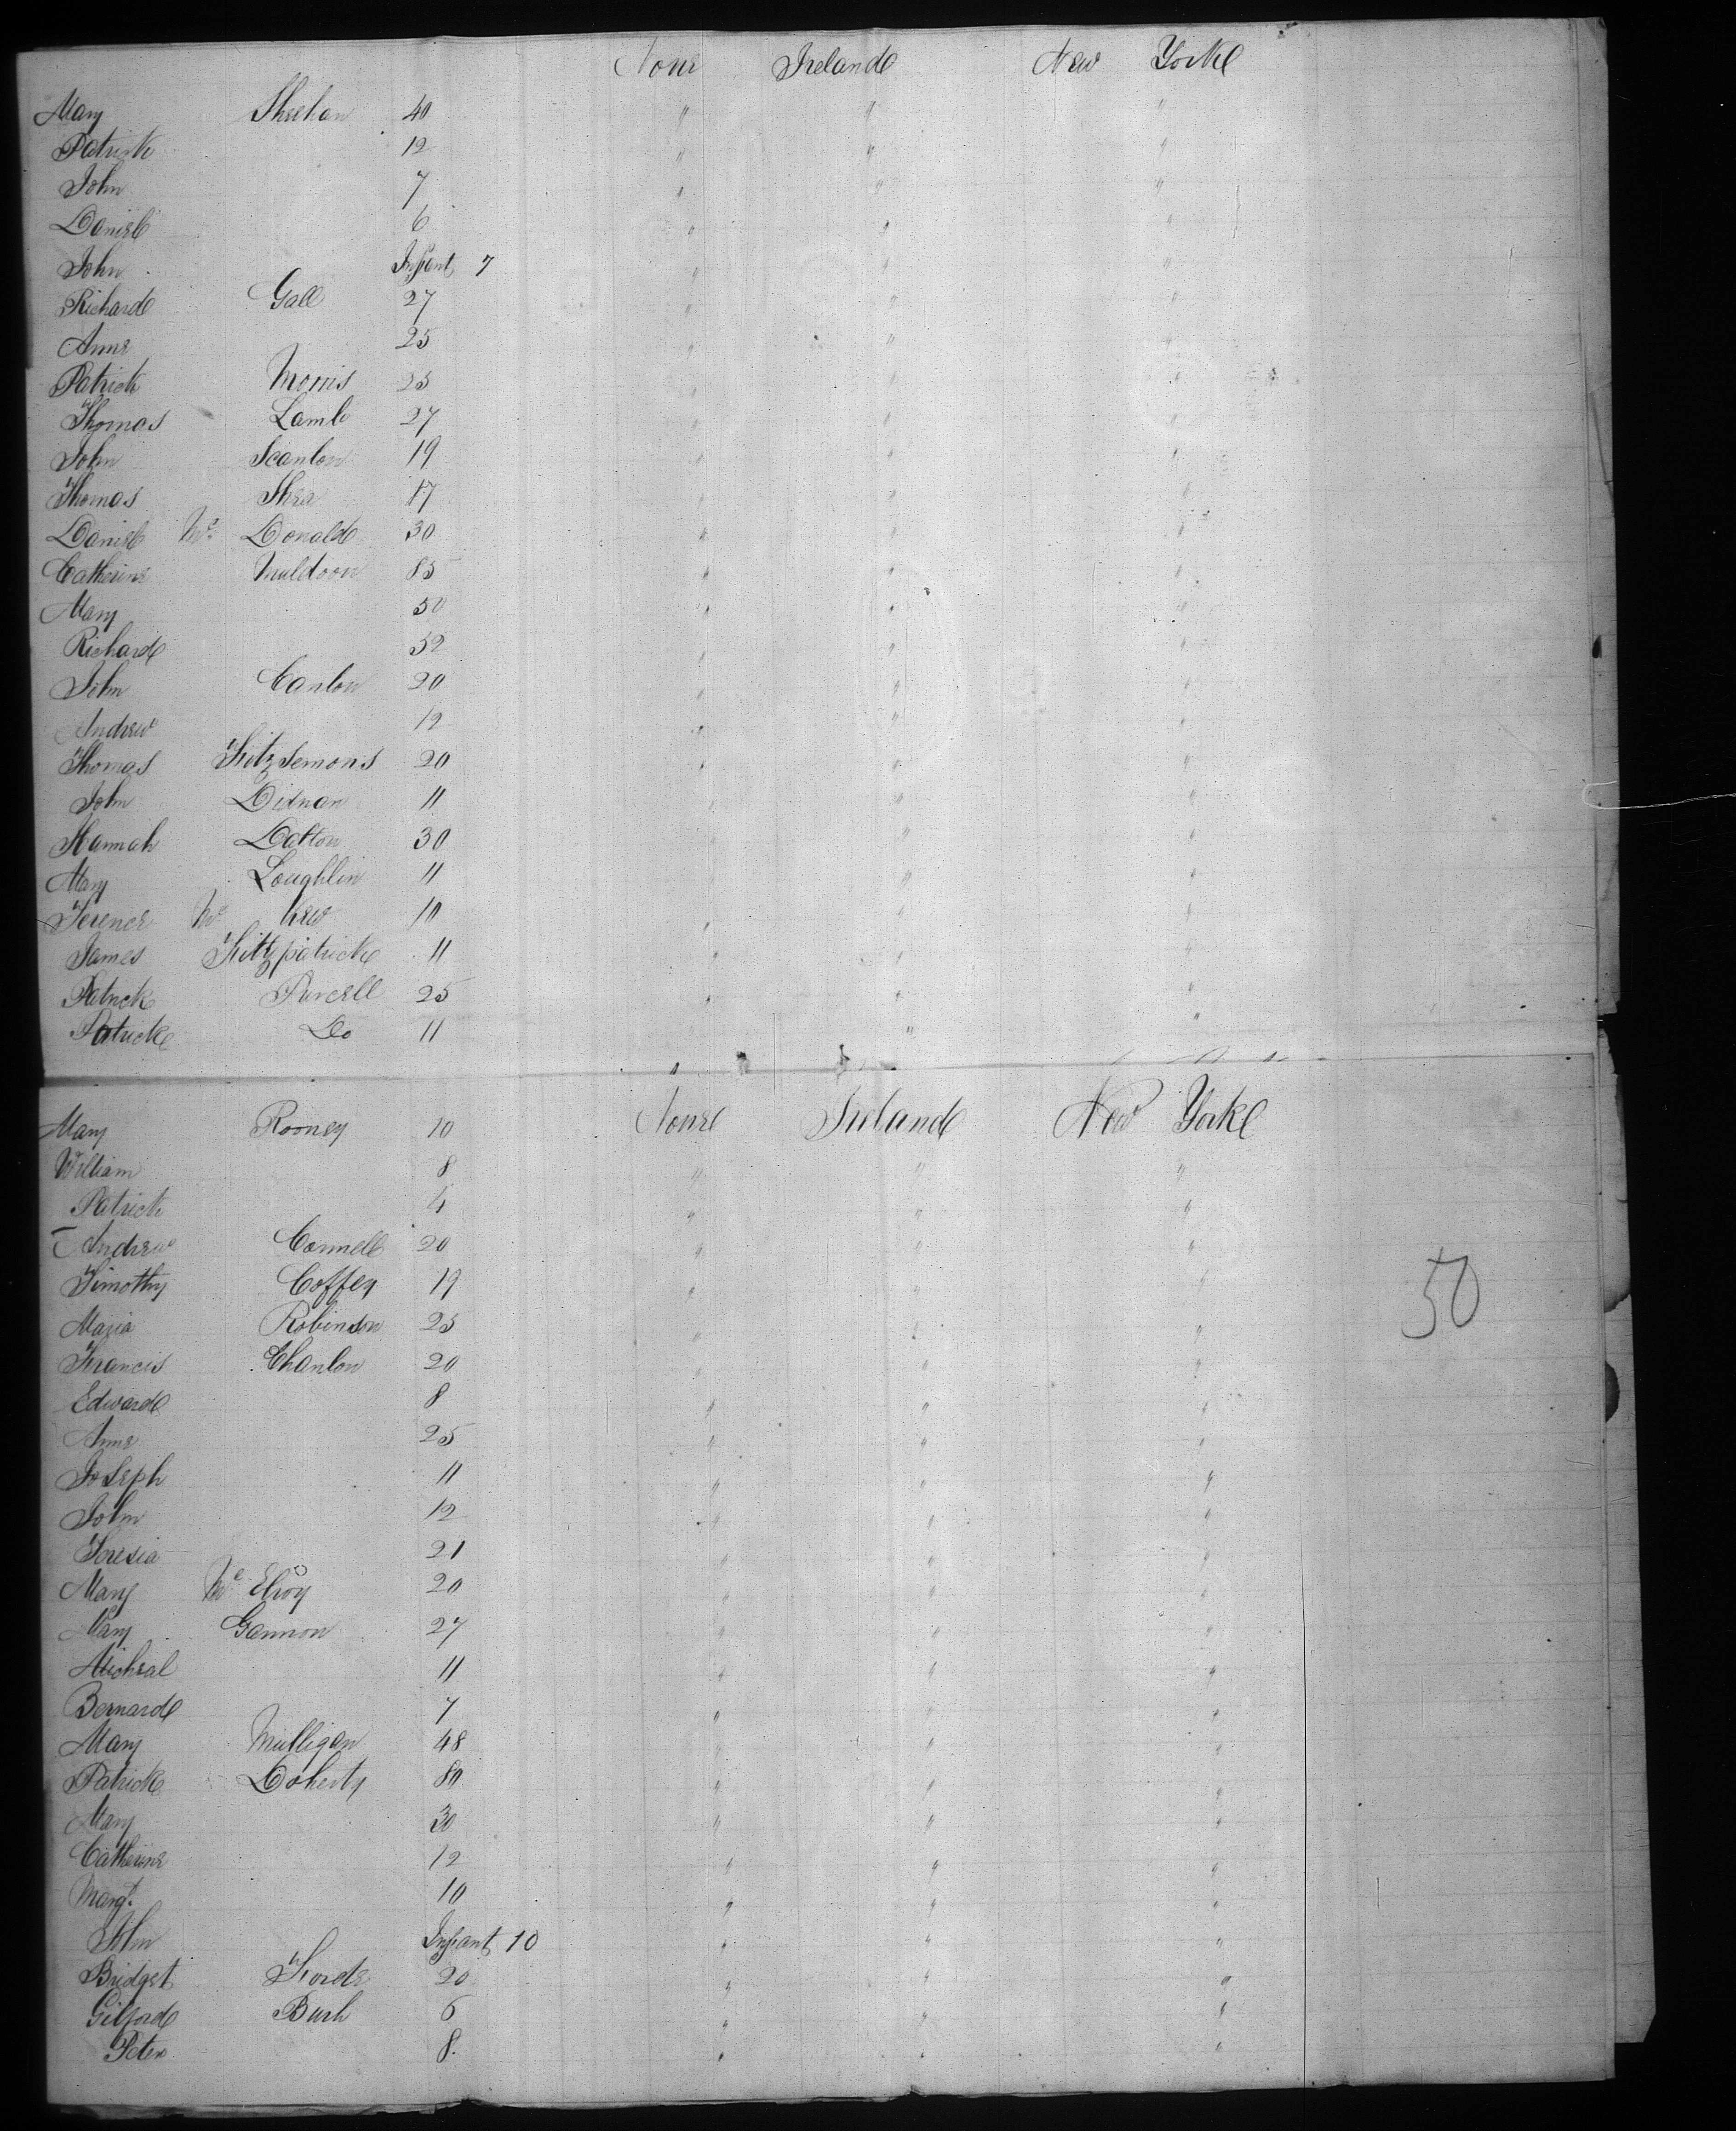 None Ireland New York
Mary Sheehan 40 " " "
Patrick 12 " " "
John 7 " " "
Daniel 6 " " "
John Infant 7 " " "
Richard Gall 27 " " "
Anne 25 " " "
Patrick Morris 25 " " "
Thomas Lamb 27 " " "
John Scanlon 19 " " "
Thomas Shea 17 " " "
Daniel Mc Donald 30 " " "
Catherine Muldoon 85 " " "
Mary 50 " " "
Richard 52 " " "
John Canlon 20 " " "
Andrew 12 " " "
Thomas Fitzsemons 20 " " "
John Dignan 11 " " "
Hannah Dalton 30 " "
Mary Loughlin 11 " " "
Terence Mc 10 " " "
James Fittzpatrick 11 " " "
Patrick Purcell 25 " " "
Patrick Do 11 " "
Mary Rooney 10 None Ireland New York
William 8 " " "
Patrick 4 " " "
Andrew Connell 20 " " "
Timothy Coffey 19 " " "
50
Maria Robinson 25 " " "
Francis Chanlon 20 " " "
Edward 8 " " "
Anne 25 " " "
Joseph 11 " " "
John 12 " " "
Teresia 21 " " "
Mary Mc Elroy 20 " " "
Mary Gannon 27 " " "
Micheal 11 " " "
Bernard 7 " " "
Mary Mulligan 48 " " "
Patrick Doherty 80 " " "
Mary 30 " " "
Catherine 12 " " "
Margt. 10 " " "
John Infant 10 " " "
Bridget Forde 20 " " "
Gilford Bush 6 " " "
Peter 8 " " "